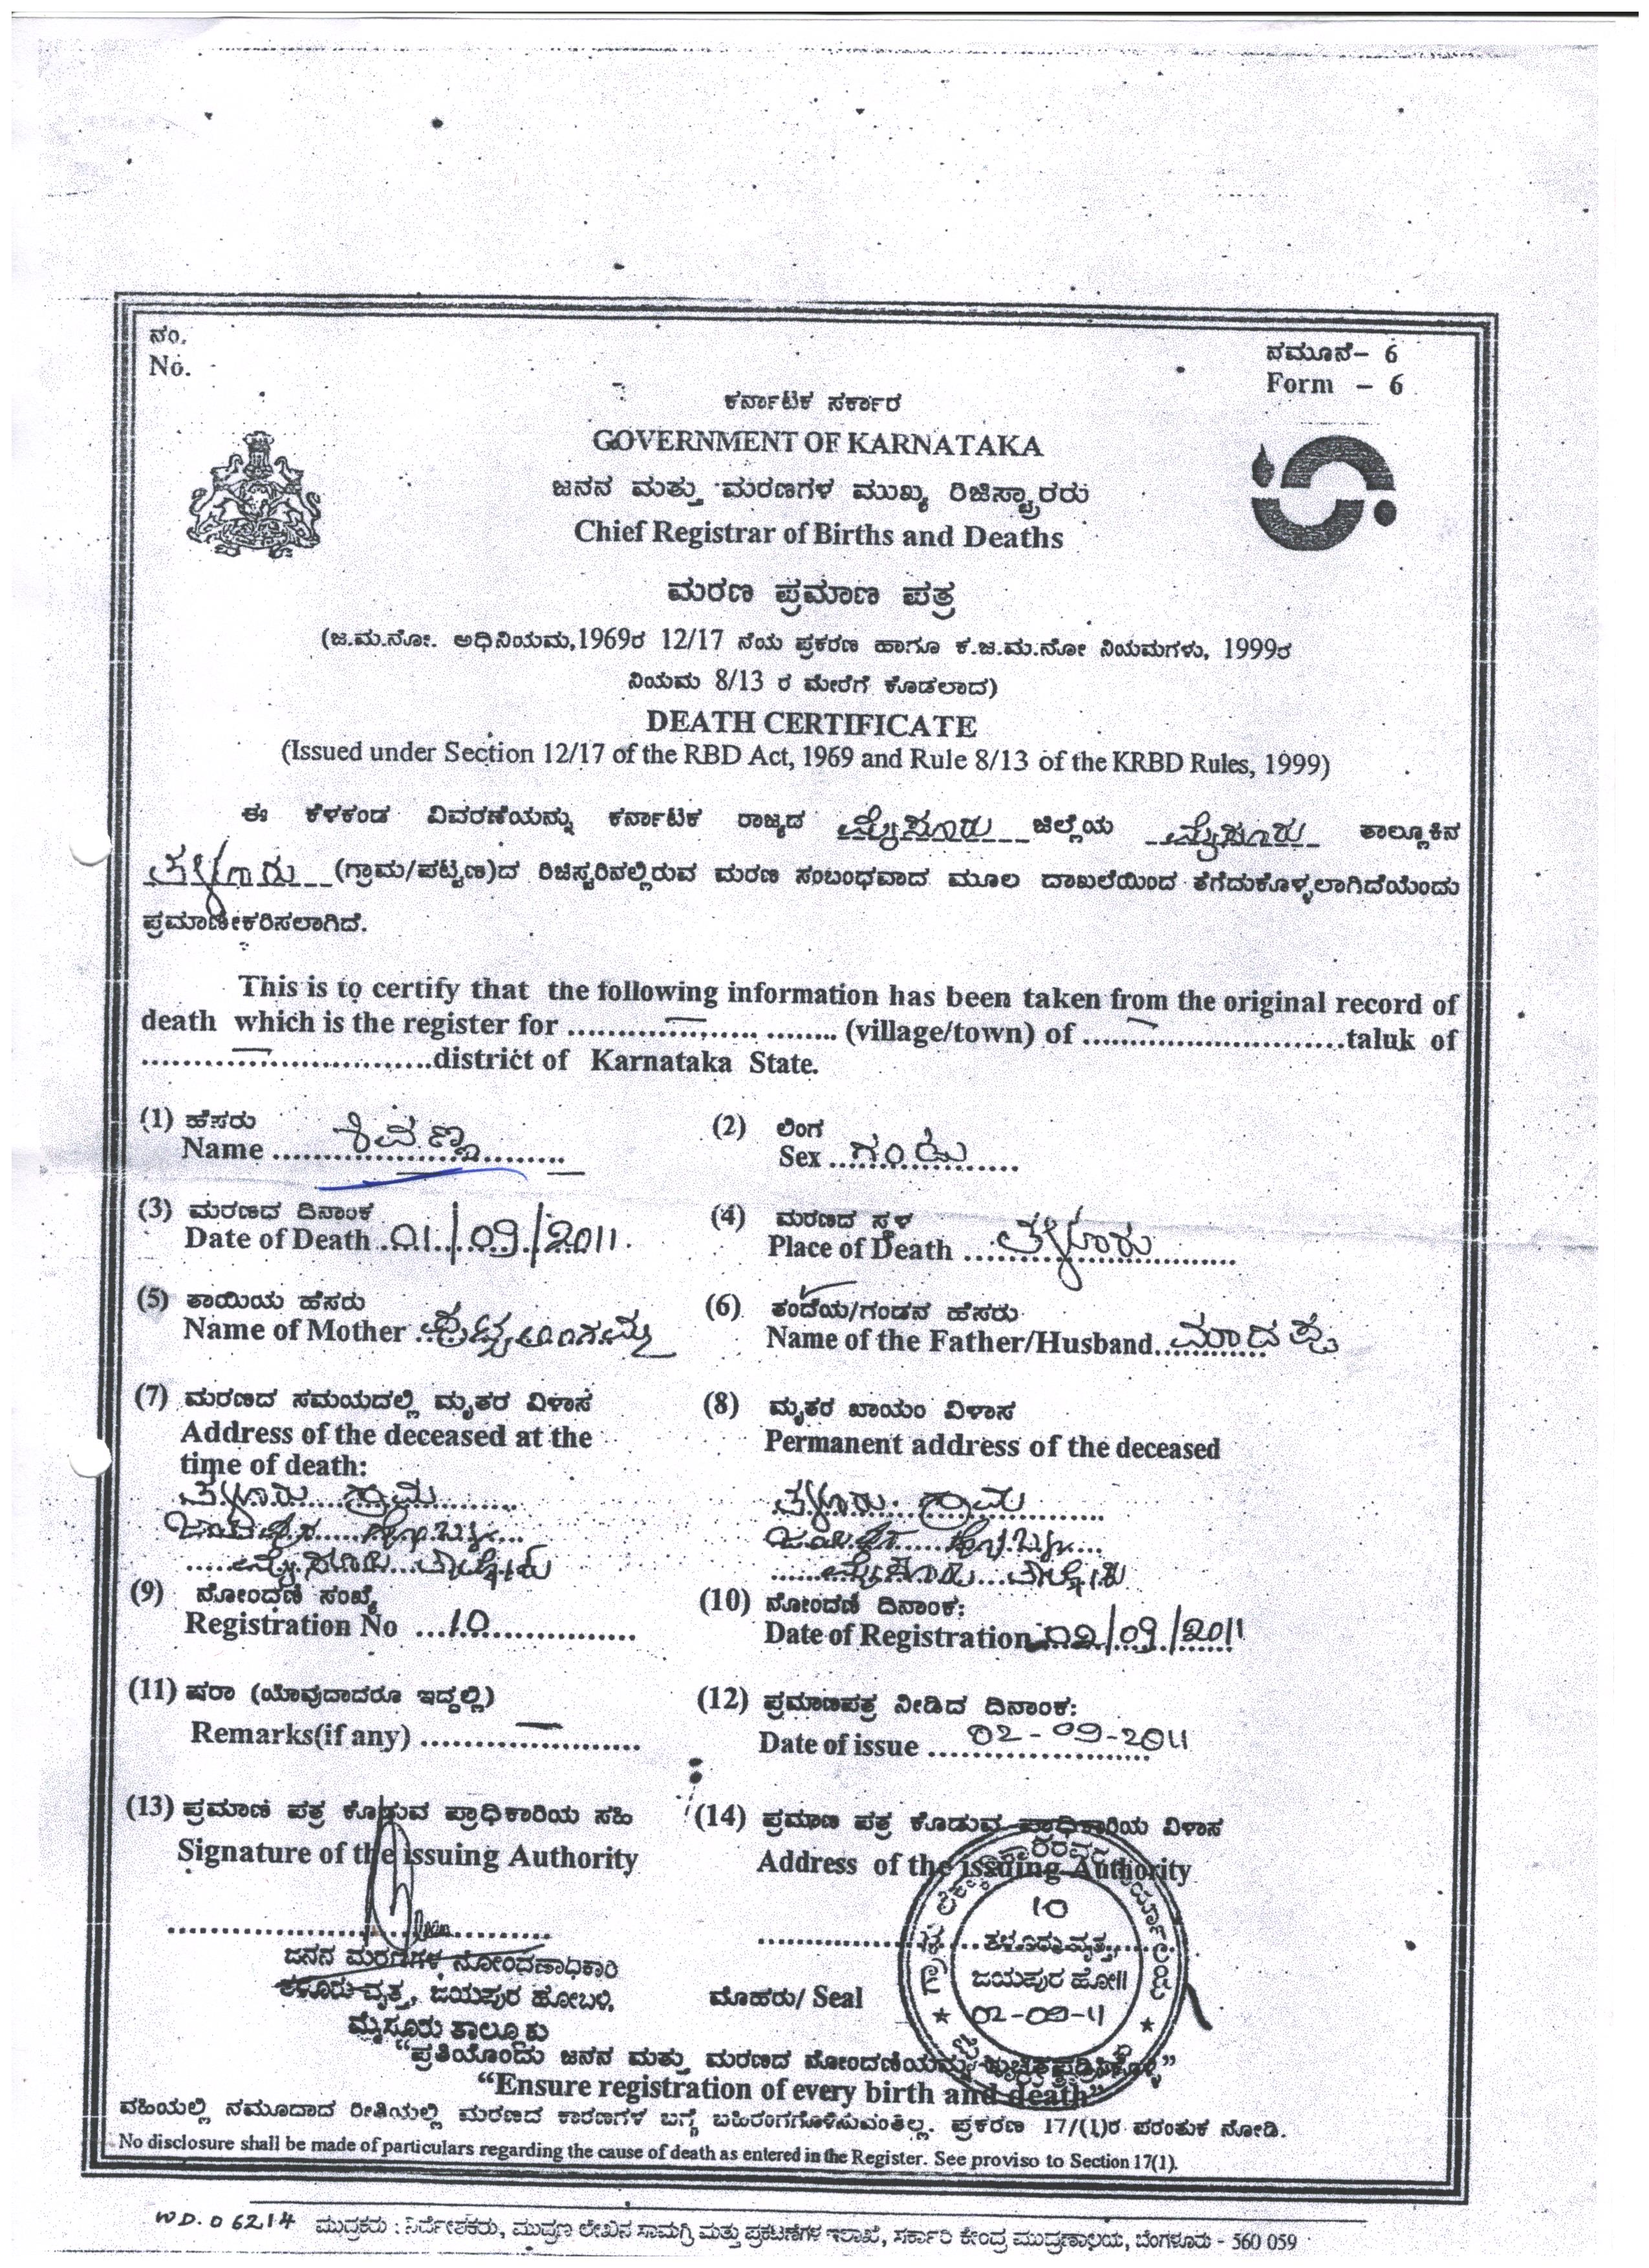 ನಂ.
No.
ನಮೂನೆ- 6
Form - 6
ಕರ್ನಾಟಕ ಸರ್ಕಾರ
GOVERNMENT OF KARNATAKA
ಜನನ ಮತ್ತು ಮರಣಗಳ ಮುಖ್ಯ ರಿಜಿಸ್ಟ್ರಾರರು
Chief Registrar of Births and Deaths
ಮರಣ ಪ್ರಮಾಣ ಪತ್ರ
(ಜ.ಮ.ನೋ. ಅಧಿನಿಯಮ,1969ರ 12/17 ನೆಯ ಪ್ರಕರಣ ಹಾಗೂ ಕ.ಜ.ಮ.ನೋ ನಿಯಮಗಳು, 1999ರ
ನಿಯಮ 8/13 ರ ಮೇರೆಗೆ ಕೊಡಲಾದ)
DEATH CERTIFICATE
(Issued under Section 12/17 of the RBD Act, 1969 and Rule 8/13 of the KRBD Rules, 1999)
ಈ ಕೆಳಕಂಡ ವಿವರಣೆಯನ್ನು ಕರ್ನಾಟಕ ರಾಜ್ಯದ ಮೈಸೂರು ಜಿಲ್ಲೆಯ ಮೈಸೂರು ತಾಲ್ಲೂಕಿನ
ತಳೂರು (ಗ್ರಾಮ/ಪಟ್ಟಣ)ದ ರಿಜಿಸ್ಟರಿನಲ್ಲಿರುವ ಮರಣ ಸಂಬಂಧವಾದ ಮೂಲ ದಾಖಲೆಯಿಂದ ತೆಗೆದುಕೊಳ್ಳಲಾಗಿದೆಯೆಂದು
ಪ್ರಮಾಣೀಕರಿಸಲಾಗಿದೆ.
This is to certify that the following information has been taken from the original record of
death which is the register for ........................ (village/town) of ........................taluk of
........................district of Karnataka State.
(1) ಹೆಸರು
Name ಶಿವಣ್ಣ
(2) ಲಿಂಗ
Sex ಗಂಡು
(3) ಮರಣದ ದಿನಾಂಕ
Date of Death 01/09/2011.
(4) ಮರಣದ ಸ್ಥಳ
Place of Death ತಳೂರು
(5) ತಾಯಿಯ ಹೆಸರು
Name of Mother ಪುಟ್ಟಲಿಂಗಮ್ಮ
(6) ತಂದೆಯ/ಗಂಡನ ಹೆಸರು
Name of the Father/Husband ಮಾದಪ್ಪ
(7) ಮರಣದ ಸಮಯದಲ್ಲಿ ಮೃತರ ವಿಳಾಸ
Address of the deceased at the
time of death:
ತಳೂರು ಗ್ರಾಮ
ಜಯಪುರ ಹೋಬಳಿ
ಮೈಸೂರು ತಾಲ್ಲೋಕು
(8) ಮೃತರ ಖಾಯಂ ವಿಳಾಸ
Permanent address of the deceased
ತಳೂರು ಗ್ರಾಮ
ಜಯಪುರ ಹೋಬಳಿ
ಮೈಸೂರು ತಾಲ್ಲೋಕು
(9) ನೋಂದಣಿ ಸಂಖ್ಯೆ
Registration No 10
(10) ನೋಂದಣಿ ದಿನಾಂಕ:
Date of Registration 02/09/2011
(11) ಷರಾ (ಯಾವುದಾದರೂ ಇದ್ದಲ್ಲಿ)
Remarks(if any) —
(12) ಪ್ರಮಾಣಪತ್ರ ನೀಡಿದ ದಿನಾಂಕ:
Date of issue 02-09-2011
(13) ಪ್ರಮಾಣ ಪತ್ರ ಕೊಡುವ ಪ್ರಾಧಿಕಾರಿಯ ಸಹಿ
Signature of the issuing Authority
(14) ಪ್ರಮಾಣ ಪತ್ರ ಕೊಡುವ ಪ್ರಾಧಿಕಾರಿಯ ವಿಳಾಸ
Address of the issuing Authority
ಜನನ ಮರಣಗಳ ನೋಂದಣಾಧಿಕಾರಿ
ತಳೂರು ವೃತ್ತ, ಜಯಪುರ ಹೋಬಳಿ,
ಮೈಸೂರು ತಾಲ್ಲೂಕು
ಮೊಹರು/ Seal
10
ತಳೂರು ವೃತ್ತ,
ಜಯಪುರ ಹೋ||
02-09-11
“ಪ್ರತಿಯೊಂದು ಜನನ ಮತ್ತು ಮರಣದ ನೋಂದಣಿಯನ್ನು ಖಚಿತಪಡಿಸಿಕೊಳ್ಳಿ”
“Ensure registration of every birth and death”
ವಹಿಯಲ್ಲಿ ನಮೂದಾದ ರೀತಿಯಲ್ಲಿ ಮರಣದ ಕಾರಣಗಳ ಬಗ್ಗೆ ಬಹಿರಂಗಗೊಳಿಸುವಂತಿಲ್ಲ. ಪ್ರಕರಣ 17/(1)ರ ಪರಂತುಕ ನೋಡಿ.
No disclosure shall be made of particulars regarding the cause of death as entered in the Register. See proviso to Section 17(1).
WD. 06214 ಮುದ್ರಕರು : ನಿರ್ದೇಶಕರು, ಮುದ್ರಣ ಲೇಖನ ಸಾಮಗ್ರಿ ಮತ್ತು ಪ್ರಕಟಣೆಗಳ ಇಲಾಖೆ, ಸರ್ಕಾರಿ ಕೇಂದ್ರ ಮುದ್ರಣಾಲಯ, ಬೆಂಗಳೂರು - 560 059